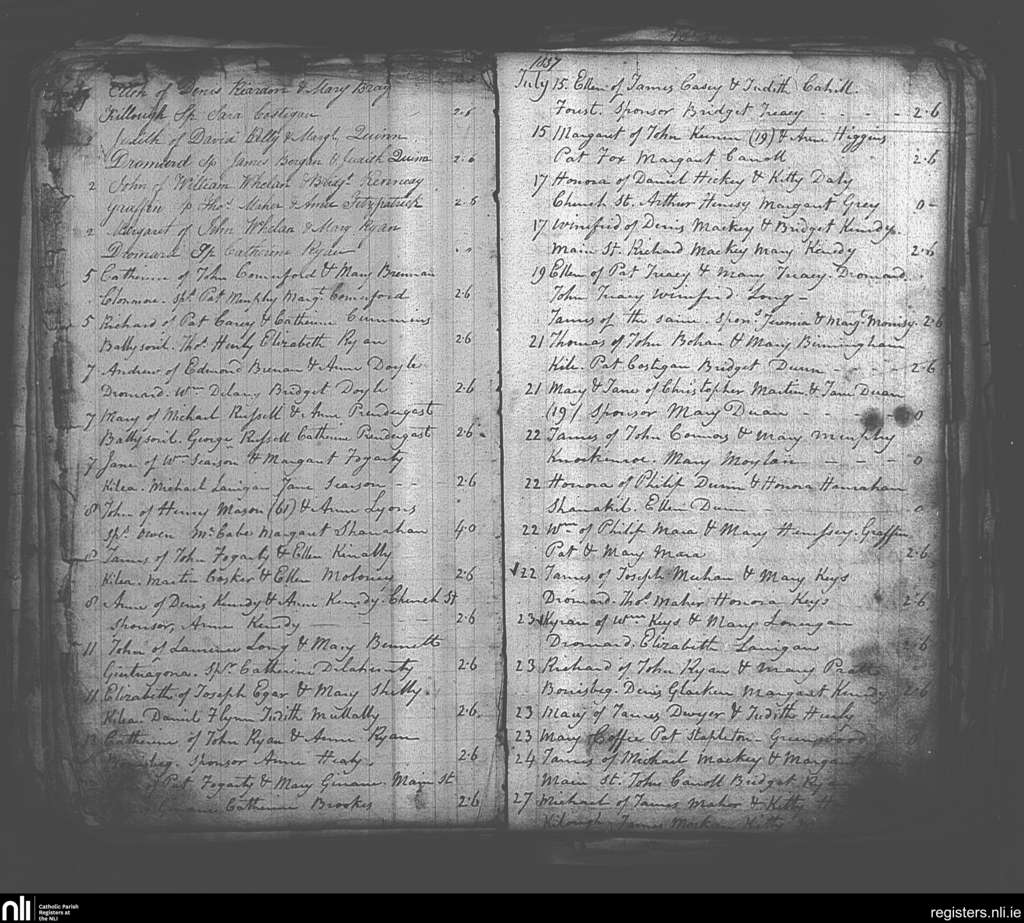 Ellen of Denis Reardon & Mary Bray
Killough Sp. Sara Costigan 2.6
Judith of David Eelly & Margt. Quinn
Dromard Sp. James Bergin & Judith Quinn 2.6
2 John of William Whelan & Bridgt. Kennedy
Graffin Sp Thos. Maher & Anne Fitzpatrick 2.6
2 Margaret of John Whelan & Mary Ryan
Dromard Sp. Catherine Ryder
5 Catherine of John Comerford & Mary Brennan
Clonmore. Sps. Pat Murphy Margt. Comerford 2.6
5 Richard of Pat Carey & Catherine Cummins
Ballysoril. Thos. Healy Elizabeth Ryan 2.6
7 Andrew of Edmond & Anne Doyle
Dromard. Wm. Delany Bridget Doyle 2.6
7 Mary of Michael Russell & Anne Prendergast
Ballysoril. George Russell Catherine Prendergast 2.6
7 Jane of Wm. Searson & Margaret Fogarty
Kilea. Michael Lanigan Jane Searson - - 2.6
8 John of Henry Mason (61) & Anne Lyons
Sps. Owen McCabe Margaret Shanahan 4.0
8 James of John Fogarty & Ellen Kenally
Kilea. Martin Cosker & Ellen Moloney 2.6
8 Anne of Denis Kenedy & Anne Kenedy. Church St
Sponsor, Anne Kenedy 2.6
11 John of Laurence Long & Mary Bennett
Sps. Catherine Delahunty 2.6
11 Elizabeth of Joseph Egar & Mary Shelly.
Kilea. Daniel Flynn Judith Mullally 2.6
13 Catherine of John Ryan & Anne Ryan
Sponsor Anne Healy. 2.6
of Pat Fogarty & Mary Guinane. Main St
Catherine Brookes 2.6
1837
July 15. Ellen of James Casey & Judith Cahill.
Foust. Sponsor Bridget Treacy - - - - 2.6
15 Margaret of John (19) & Anne Higgins
Pat Fox Margaret Carroll 2.6
17 Honora of Daniel Hickey & Kitty Daly
Church St. Arthur Henesy Margaret Grey 0
17 Winifred of Denis Mackey & Bridget Kenedy.
Main St. Richard Mackey Mary Kenedy 2.6
19 Ellen of Pat Treacy & Mary Treacy. Dromard.
John Treacy Winifred Long -
James of the same. Spons. & Margt. 2.6
21 Thomas of John Bohan & Mary Birmingham
Kile. Pat Costigan Bridget Dunn - - - - 2.6
21 Mary & Jane of Christopher Martin & Jane Duan
(19) Sponsor Mary Duan - - - - 0
22 James of John Connors & Mary Murphy
Knockinroe. Mary Moylan - - - - 0
22 Honora of Philip Dunn & Honora Hanrahan
Shanakil. Ellen Dunn 0
22 Wm. of Philip Mara & Mary Hempsey. Graffin
Pat & Mary Mara 2.6
22 James of Joseph Meehan & Mary Keys
Dromard. Thos. Maher Honora Keys 2.6
23 Kyran of Wm. Keys & Mary Lonergan
Dromard. Elizabeth Lanigan 2.6
23 Richard of John Ryan & Mary
Borrisbeg. Denis Glacken Margaret Kenedy 2.6
23 Mary of James Dwyer & Judith Healy
23 Mary Coffice Pat Stapleton - Greenwood
24 James of Michael Mackey & Margaret
Main St. John Carroll Bridget Ryan
27 Michael of James Maher & Kitty
Kilough. James Kitty
nli
Catholic Parish
Registers at
the NLI
registers.nli.ie